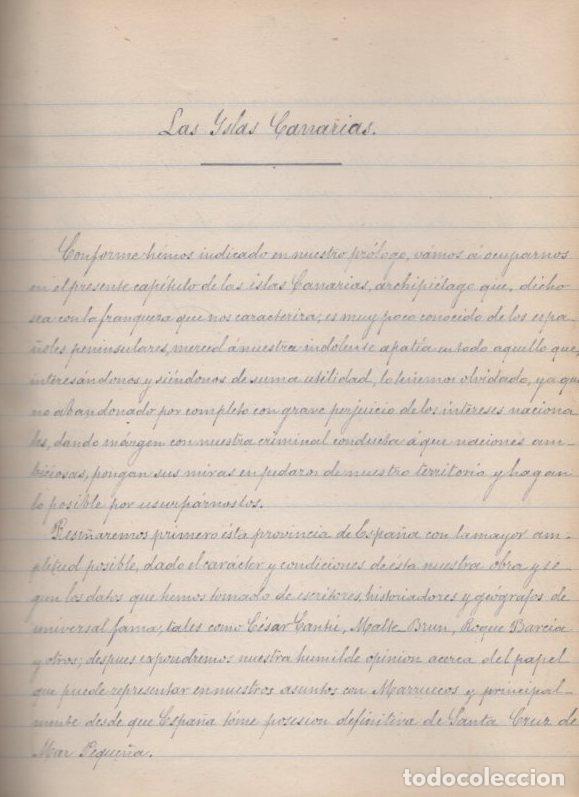 Las Yslas Canarias.
Conforme hémos indicado en nuestro prólogo, vámos á ocuparnos
en el presente capítulo de las islas Canarias, archipiélago que, dicho
sea con la franqueza que nos caracteriza; es muy poco conocido de los espa-
ñoles peninsulares, merced á nuestra indolente apatía en todo aquello que
interesándonos y siéndonos de suma utilidad, lo tenemos olvidado, ya que
no abandonado por completo con grave perjuicio de los intereses naciona
les, dando márgen con nuestra criminal conducta á que naciones am-
biciosas, pongan sus miras en pedazos de nuestro territorio y hagan
lo posible por usurpárnoslos.
Reseñaremos primero ésta provincia de España con la mayor am-
plitud posible, dado el carácter y condiciones de ésta nuestra obra y se-
gun los datos que hemos tomado de escritores, historiadores y geógrafos de
universal fama; tales como César Cantú, Malte Brun, Roque Barcia
y otros; despues expondremos nuestra humilde opinion acerca del papel
que puede representar en nuestros asuntos con Marruecos y principal-
mente desde que España tóme posesion definitiva de Santa Cruz de
Mar Pequeña.
todocoleccion.net